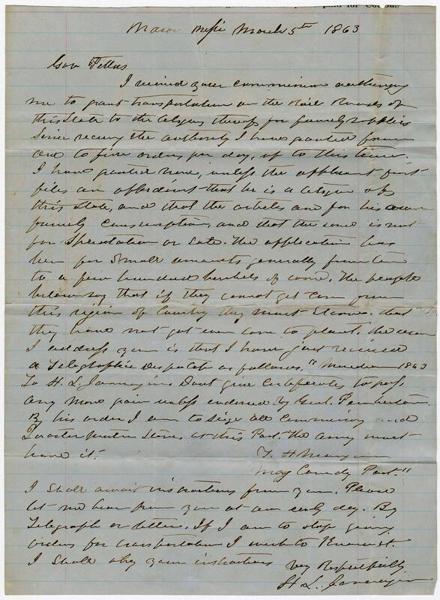 Macon Miss March 5th 1863
Gov Pettus
I received your commission authorizing
me to grant transportation on the Rail Roads of
this State to the citizens thereof for family supplies
Since receiving the authority I have granted from
one to five orders per day, up to this time.
I have granted none, unless the applicant first
files an affidavit that he is a citizen of
this State, and that the articles are for his own
family consumption, and that the same is not
for Speculation or Sale. The application has
been for Small amounts, generally from ten
to a few hundred bushels of corn. The people
below say that if they cannot get corn from
this region of Country they must starve. that
they have not got even corn to plant. The reason
I address you is that I have just received
a Telegraphic Dispatch as follows. " Meridian 1863
To H. L. Dont give Certificates to pass
any more grain unless endorsed by Genl. Pemberton
By his order I am to seize all Commissary and
Quartermaster Stores at this Post. The army must
have it.
Comdg Post"
I shall await instructions from you. Please
let me hear from you at an early day. By
Telegraph or letter. If I am to stop giving
orders for transportation I wish to know it.
I shall obey your instructions Very Respectfully
H. L.